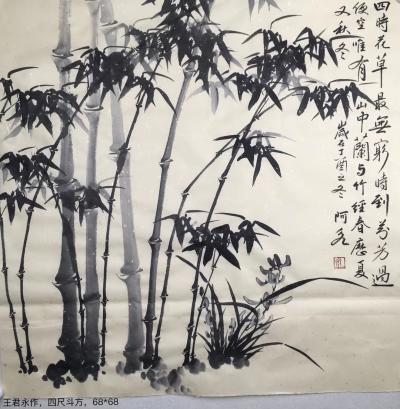 四時花草最無窮時到芬芳過
便空唯有山中蘭與竹經春歷夏
又秋冬
歲在丁酉之冬 阿永
王君永作，四尺斗方，68*68